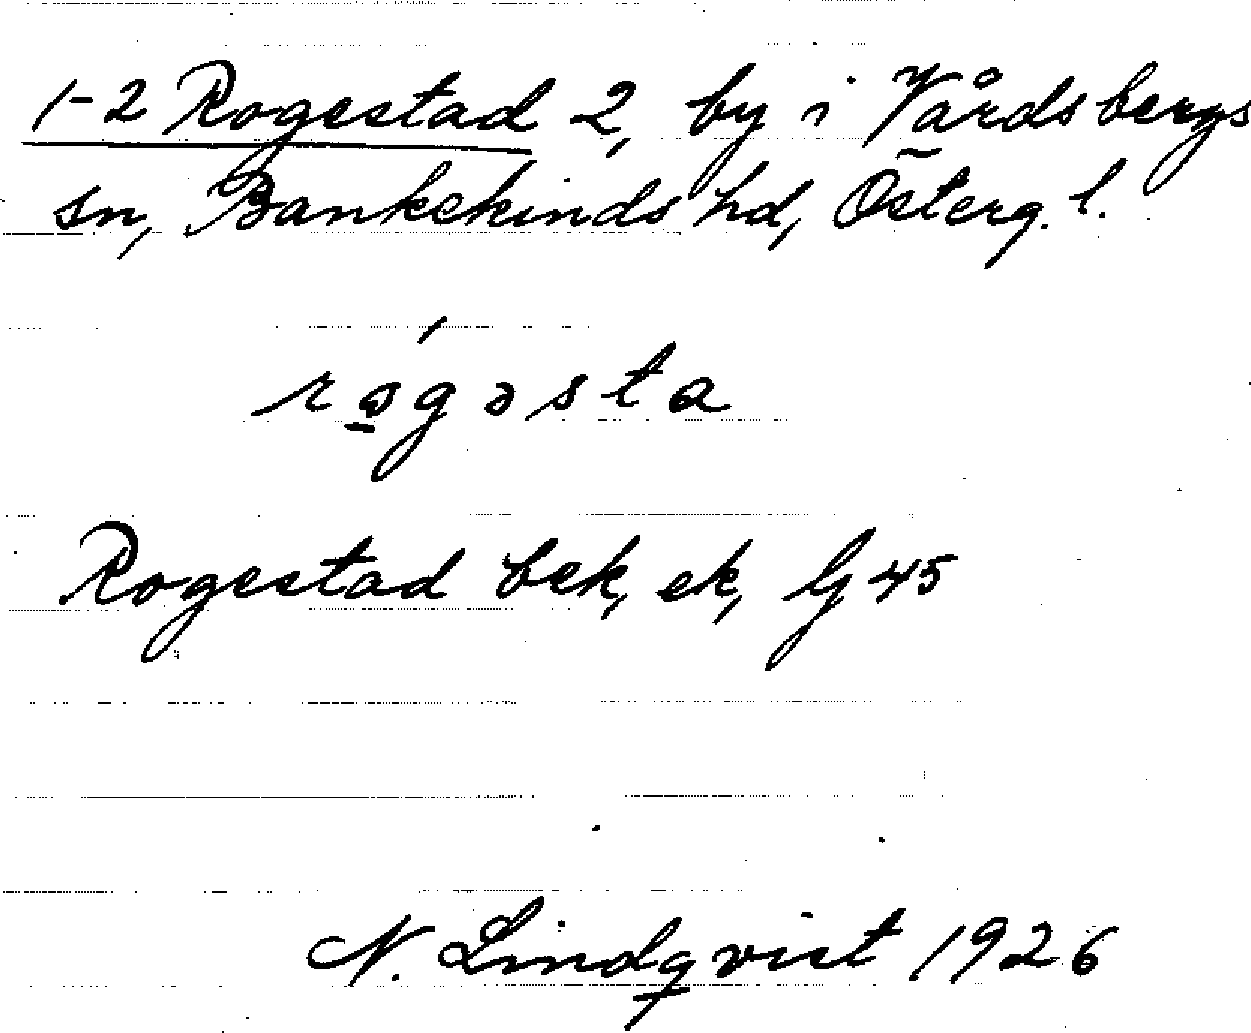 1-2 Rogestad 2, by i Vårdsbergs
sn, Bankekinds hd, Österg. l.
rəg´əsta
Rogestad bek, ek, Gj 45
N. Lindqvist 1926